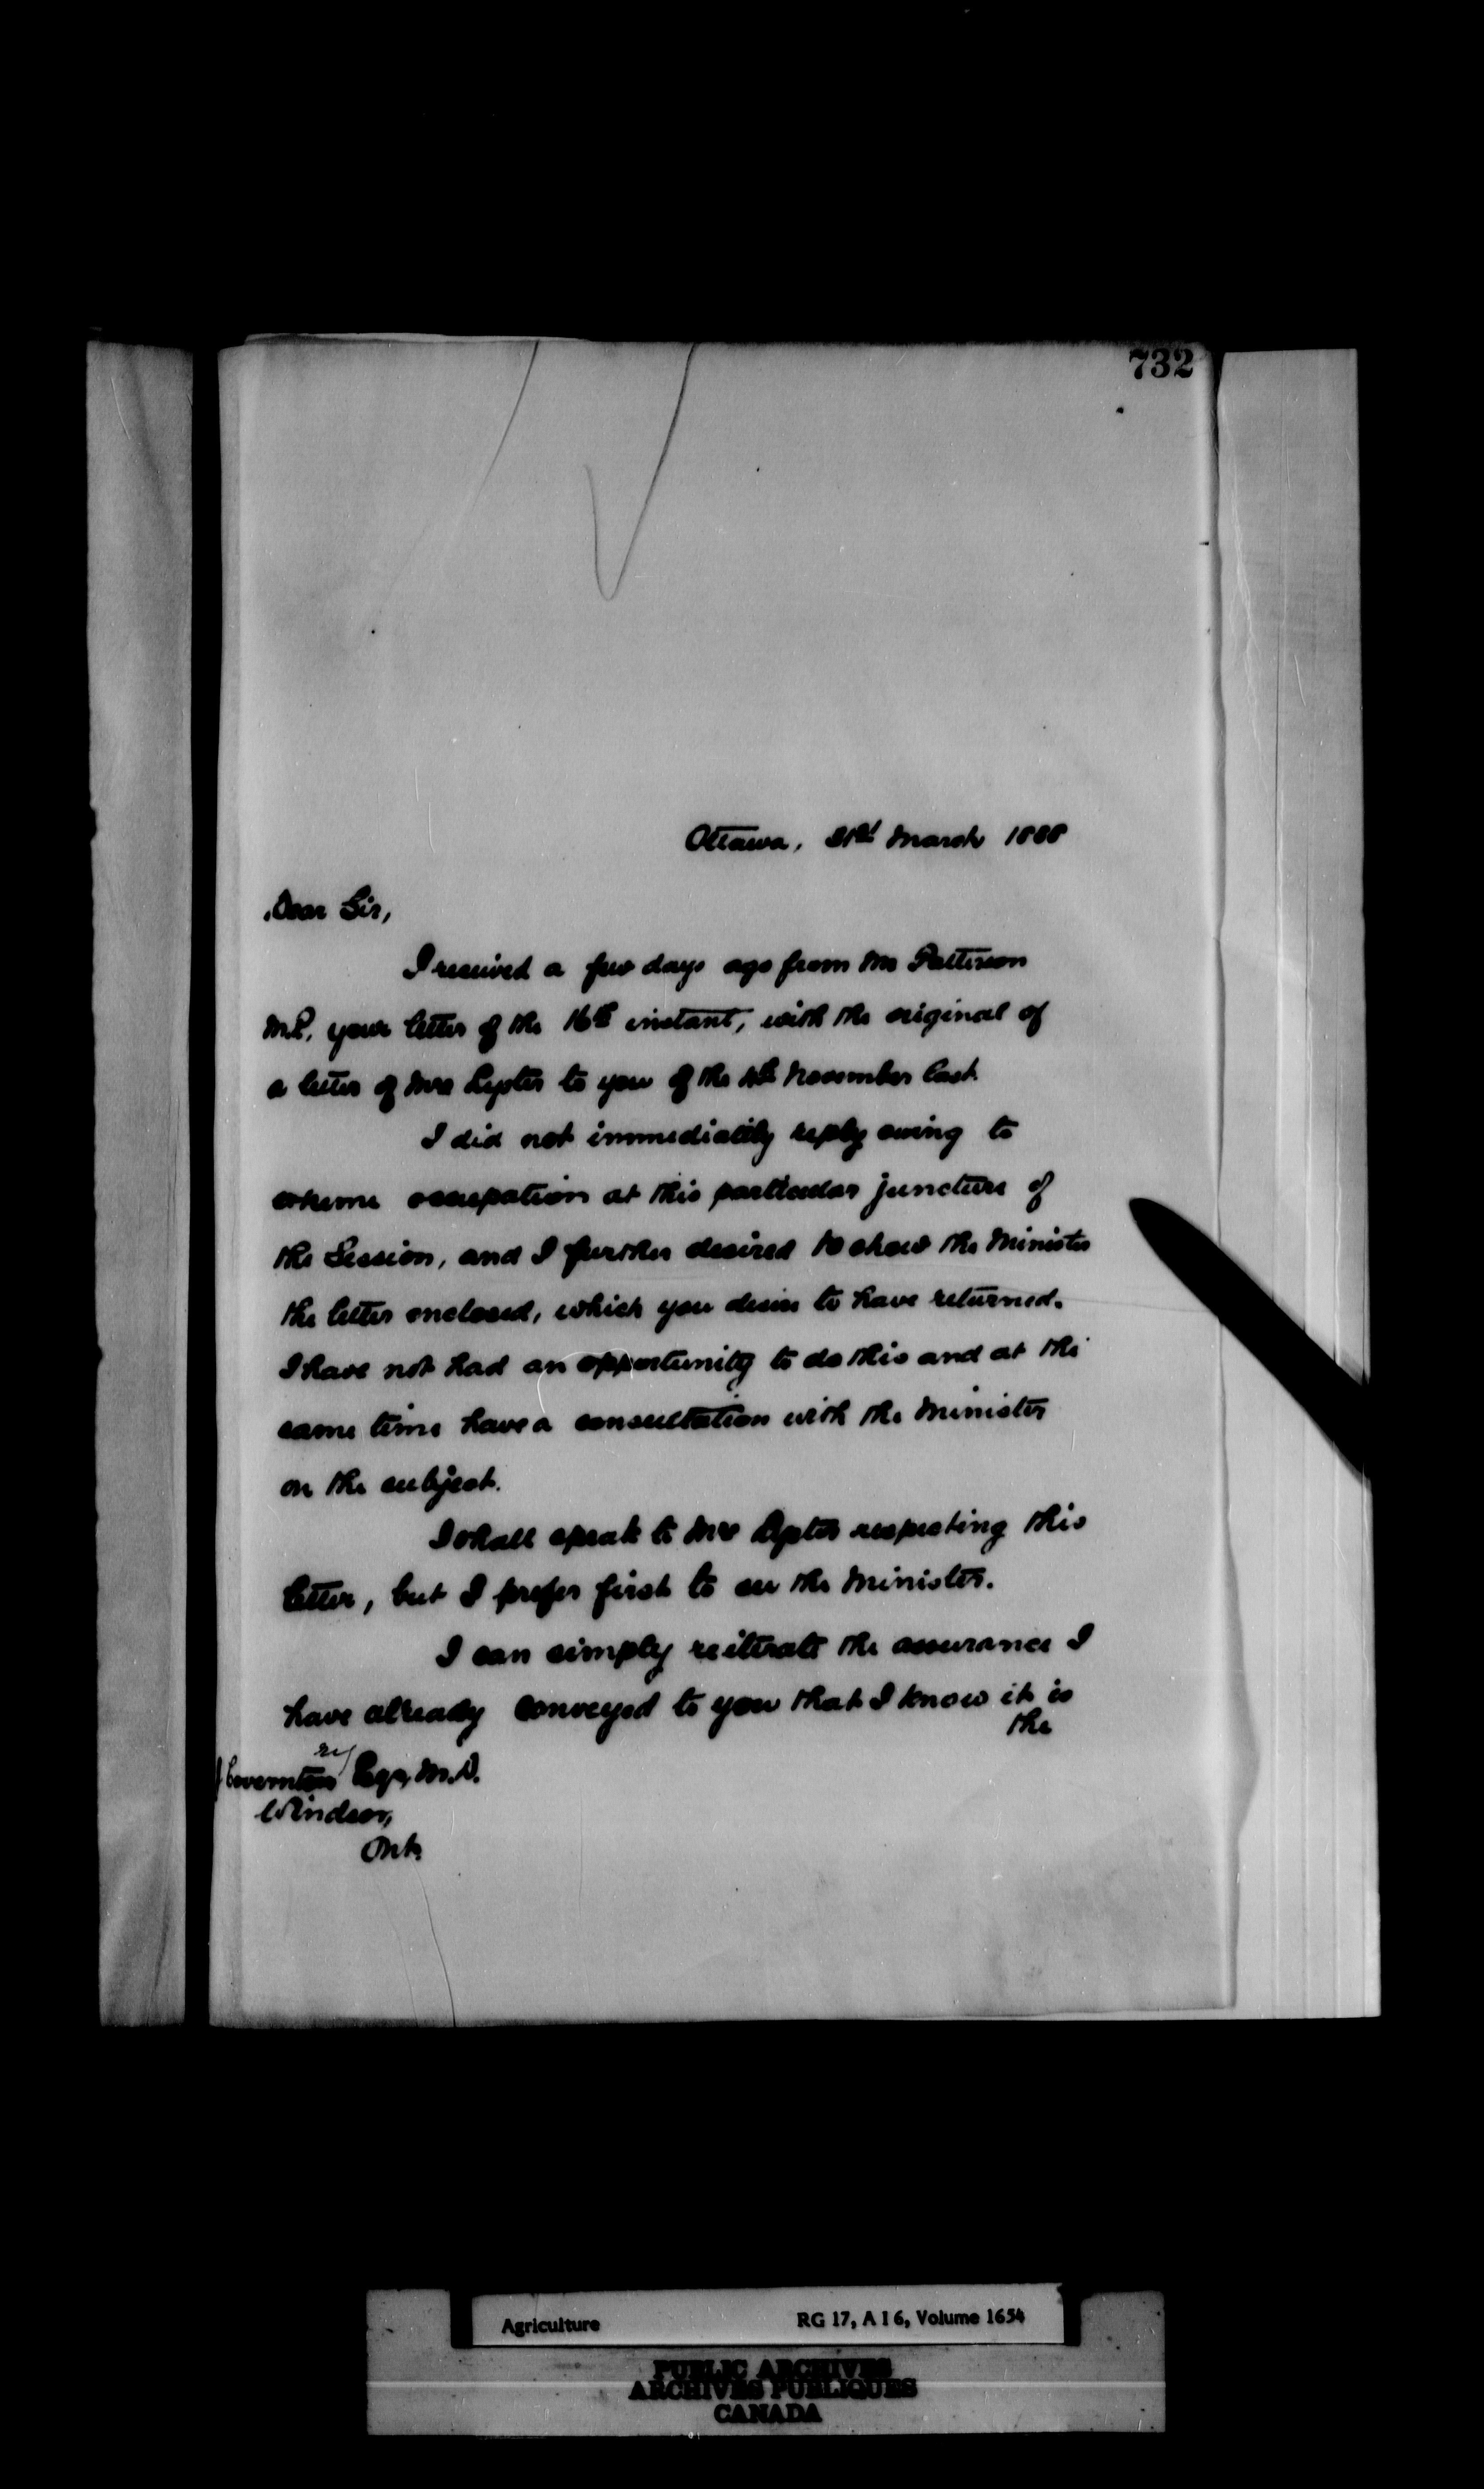 732
Ottawa, 31st March 1888
Dear Sir,
I received a few days ago from Mr Patterson
M.P. your letter of the 16th instant, with the original of
a letter of Mrs to you of the November last.
I did not immediately reply owing to
extreme occupation at this particular juncture of
the Session, and I further desired to show the Minister
the letter enclosed, which you desire to have returned.
I have not had an opportunity to do this and at the
same time have a consultation with the Minister
on the subject.
I shall speak to Mrs respecting this
letter, but I prefer first to see the Minister.
I can simply reiterate the assurance I
have already conveyed to you that I know it is
the
Coventry Esq, M.D.
Windsor,
Ont.
Agriculture RG 17, A I 6, Volume 1654
PUBLIC ARCHIVES
ARCHIVES PUBLIQUES
CANADA